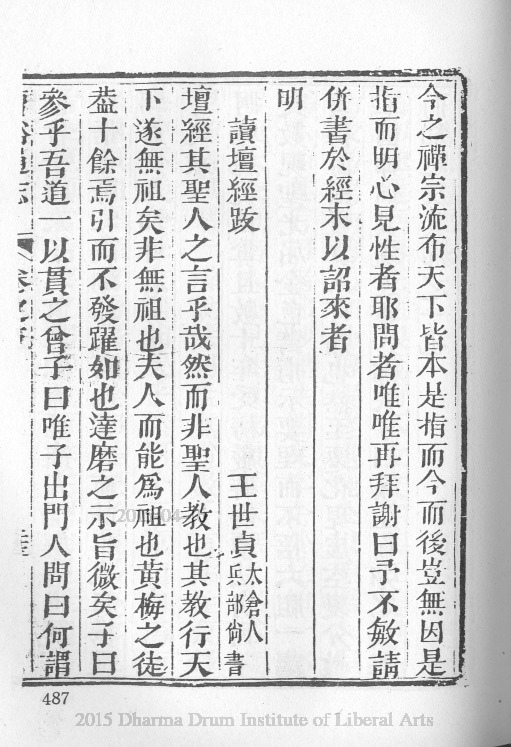 今之禪宗流布天下皆本是指而今而後豈無因是
指而明心見性者耶問者唯唯再拜謝曰予不敏請
併書於經末以詔來者
明
讀壇經跋
王世貞太倉人兵部尙書
壇經其聖人之言乎哉然而非聖人教也其教行天
下遂無祖矣非無祖也夫人而能爲祖也黃梅之徒
葢十餘焉引而不發躍如也達磨之示旨微矣子曰
參乎吾道一以貫之曾子曰唯子出門人問曰何謂
487
2015 Dharma Drum Institute of Liberal Arts